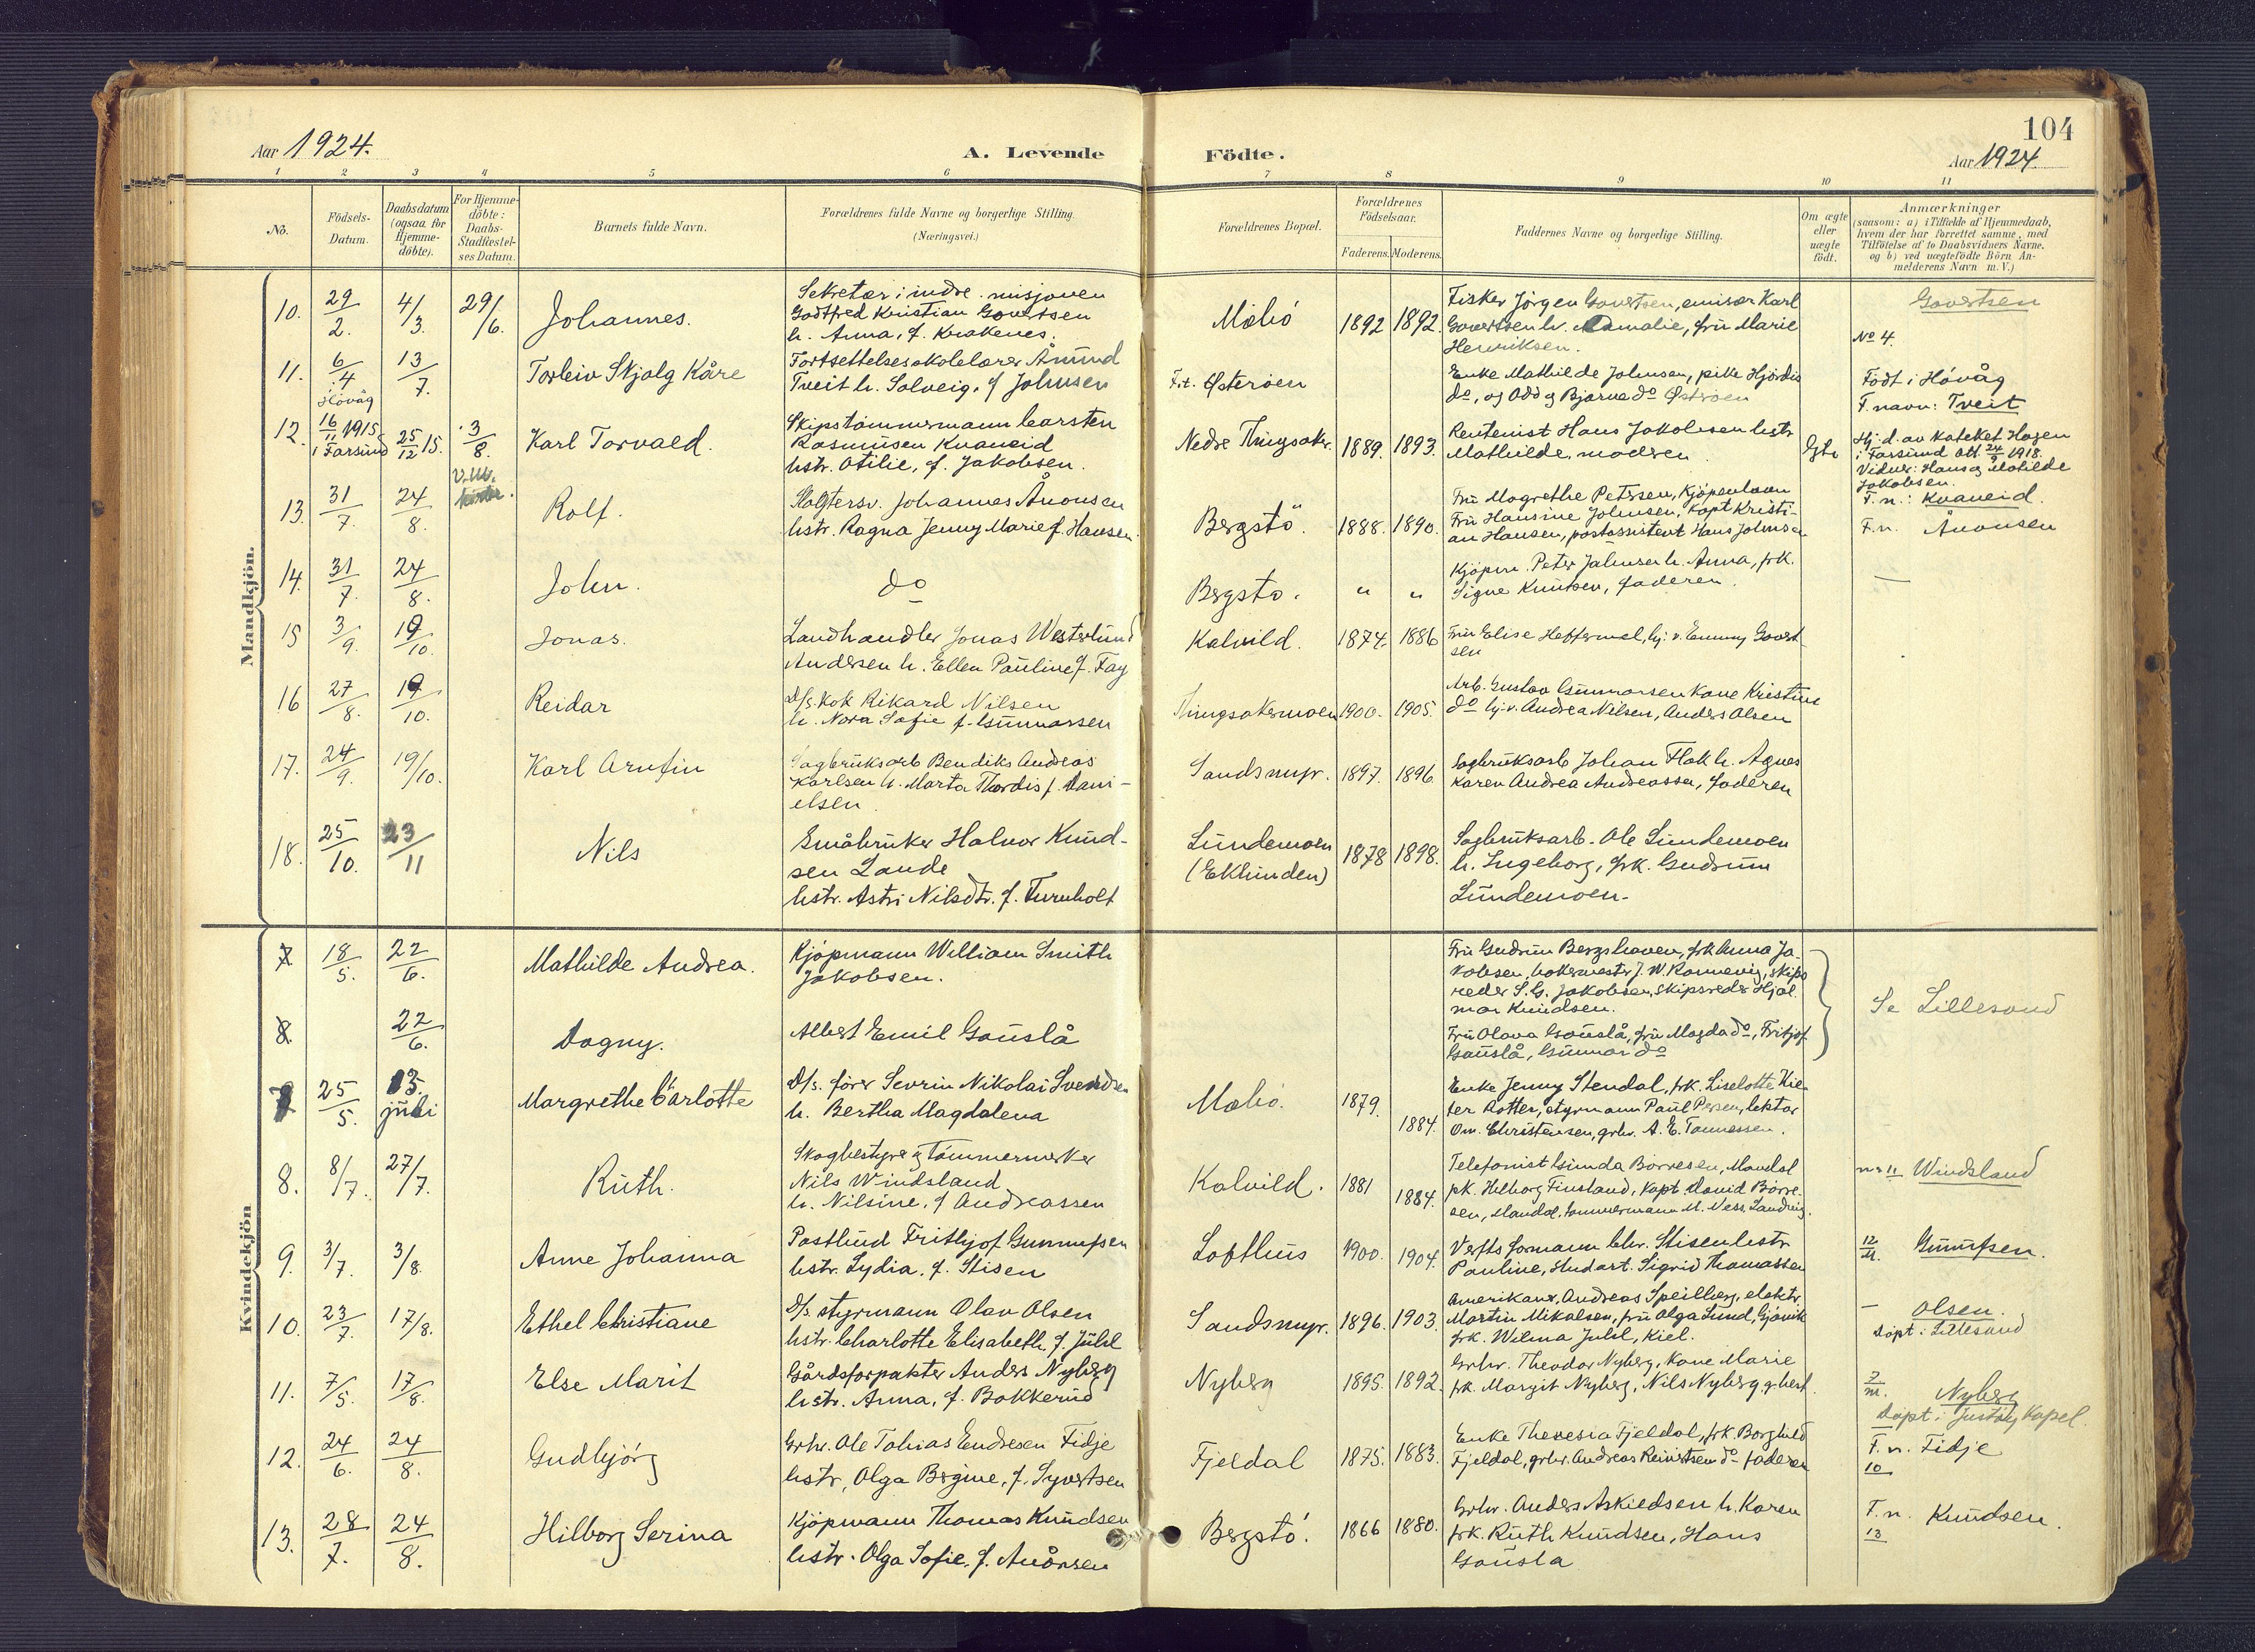 104
Aar 1924.
A. Levende
Födte.
Aar 1924.
1 2 3 4 5 6 7 8 9 10 11
No.
Födsels-
Datum.
Daabsdatum
(ogsaa for
Hjemme-
döbte).
For Hjemme-
döbte:
Daabs-
Stadfæstel-
ses Datum.
Barnets fulde Navn.
Forældrenes fulde Navne og borgerlige Stilling.
(Næringsvei.)
Forældrenes Bopæl.
Forældrenes
Födselsaar.
Faderens. Moderens.
Faddernes Navne og borgerlige Stilling.
Om ægte
eller
uægte
födt.
Anmærkninger
(saasom: a) i Tilfælde af Hjemmedaab,
hvem der har forrettet samme, med
Tilföielse af to Daabsvidners Navne,
og b) ved uægtefödte Börn An-
melderens Navn m. V.)
Mandkjön.
10. 29/2. 4/3. 29/6. Johannes.
Sekretær i indre misjonen
Godtfred Kristian Govertsen
h. Anna, f. Krakenes.
Mælió 1892 1892.
Fisker Jörgen Govertsen, emisær Karl
Govertsen h. Amalie, frü Marie
Henriksen.
Govertsen
No 4.
11. 6/4 i Hövåg 13/7. Torleiv Skjalg Kåre
Fortsettelsesskolelærer Åmund
Tveit h. Solveig, f Johnsen
F.t. Østeröen
Enke Mathilde Johnsen, pike Hjördis
do, og Odd og Bjarne do Østeröen
Födt i Hövåg
F. navn: Tveit
12. 16/11 1915 i Farsund 25/12 15. 3/8. Karl Torvald.
Skipstömmermann Carsten
Rasmusen Kvaneid
hstr. Otilie, f. Jakobsen.
Nedre Thingsaker 1889. 1893.
Rentenist Hans Jakobsen hstr
Mathilde, moderen
Hj. d. av kateket Hagen
i Farsund att 24/9 1918.
Vidner: Hans og Matilde
Jakobsen.
F. n.: Kvaneid.
13. 31/7. 24/8. Rolf.
Slagtersv. Johannes Ånonsen
hstr. Ragna Jenny Marie f. Hansen.
Bergstö. 1888. 1890.
Frü Magrethe Petersen, Kjöpenhavn
Frü Hansine Johnsen, Kapt Kristi-
an Hansen, postassistent Hans Johnsen
F. n. Ånonsen
14. 31/7. 24/8. John. do
Bergstö. " "
Kjöpm. Peter Johnsen h. Anna, frk.
Signe Knutsen, faderen.
15 3/9. 19/10. Jonas.
Landhandler Jonas Westerlund
Andersen h. Ellen Pauline f. Fay
Kalvild. 1874. 1886
Frü Elise Heffermel, hj. v. Emmy Govert-
sen
16 27/8. 19/10. Reidar
D/s. Kok Rikard Nilsen
h. Nora Sofie f. Gunnarsen
Thingsakermoen 1900. 1905.
Arb. Gustav Gunnarsen Kone Kristine
do hj. v. Andrea Nilsen, Anders Olsen
17. 24/9. 19/10. Karl Arnfin
Sagbruksarb Bendiks Andreas
Karlsen h. Marta Thordis f. Dani-
elsen
Sandsmyr. 1897. 1896
Sagbruksarb Johan Flak h. Agnes
Karen Andrea Andreassen, faderen
18. 25/10. 23/11 Nils
Småbruker Halvor Knud-
sen Lande
hstr. Astri Nilsdtr. f. Furuholt
Lundemoen
(Eklunden) 1878 1898.
Sagbruksarb. Ole Lundemoen
h. Ingeborg, frk. Gudrun
Lundemoen.
Kvindekjön
7 18/5. 22/6. Mathilde Andrea.
Kjöpmann William Smith
Jakobsen.
Frü Gudrun Bergshaven, frk Anna Ja-
kobsen, bakermester J. W. Rannevig, skips
reder S. G. Jakobsen, skipsreder Hjal
mar Knudsen.
Se Lillesand
8. 22/6. Dagny.
Albert Emil Gauslå
Frü Olava Gauslå, frü Magda do, Fritjof
Gauslå, Gunnar do
7 25/5. 13. juli Margrethe Carlotte
D/s. förer Severin Nikolai Svendsen
h. Bertha Magdalena
Mælió. 1879. 1884.
Enke Jenny Stendal, frk. Liselotte Kie-
ter Rotter, styrmann Paul Persen, lektor
Om. Christensen, grbr. A. E. Tønnessen.
8. 8/7. 27/7. Ruth.
Skogbestyrer og Tömmermerker
Nils Windsland
h. Nilsine, f Andreassen
Kalvild. 1881 1884.
Telefonist Gunda Börresen, Mandal
pk. Helborg Finsland, Kapt. David Börre-
sen, Mandal, tömmermann M. Vess, Landvig.
nr 11 Windsland
9. 3/7. 3/8. Anne Johanna
Postbud Frithjof Gunnufsen
hstr. Lydia, f. Stisen
Lofthus 1900. 1904.
Verfts formann Chr. Stisen hstr
Pauline, Hudart. Sigrid Thomassen
12/nr. Gunnufsen.
10. 23/7. 17/8. Ethel Christiane
D/s. styrmann Olav Olsen
hstr. Charlotte Elisabeth, f. Juhl
Sandsmyr. 1896. 1903.
Amerikaner Andreas Speilberg, elektr.
Martin Mikalsen, frü Olga Lund, Gjövik
frk. Wilma Juhl, Kiel.
Olsen.
döpt i Lillesand
11. 7/5. 17/8. Else Marit
Gårdsforpakter Anders Nyberg
hstr. Anna, f. Bakkerud
Nyberg 1895. 1892.
Grbr. Theodor Nyberg, Kone Marie
frk. Margit Nyberg, Nils Nyberg gbest.
7/nr. Nyberg
döpt i Justöy Kapel.
12. 24/6. 24/8. Gudbjörg
Grbr. Ole Tobias Endresen Fidje
hstr, Olga Bergine, f. Syvertsen
Fjeldal 1875. 1883.
Enke Theresia Fjeldal, frk. Borghild
Fjeldal, grbr. Andreas Reinertsen do faderen
F. n. Fidje
10
13. 28/7. 24/8. Hilborg Serina
Kjöpmann Thomas Knudsen
hstr. Olga Sofie, f. Anonsen
Bergstö. 1866 1880.
Grbr. Anders Askiedsen h. Karen
frk. Ruth Knudsen, Hans
Gausla
F. n. Knudsen.
13